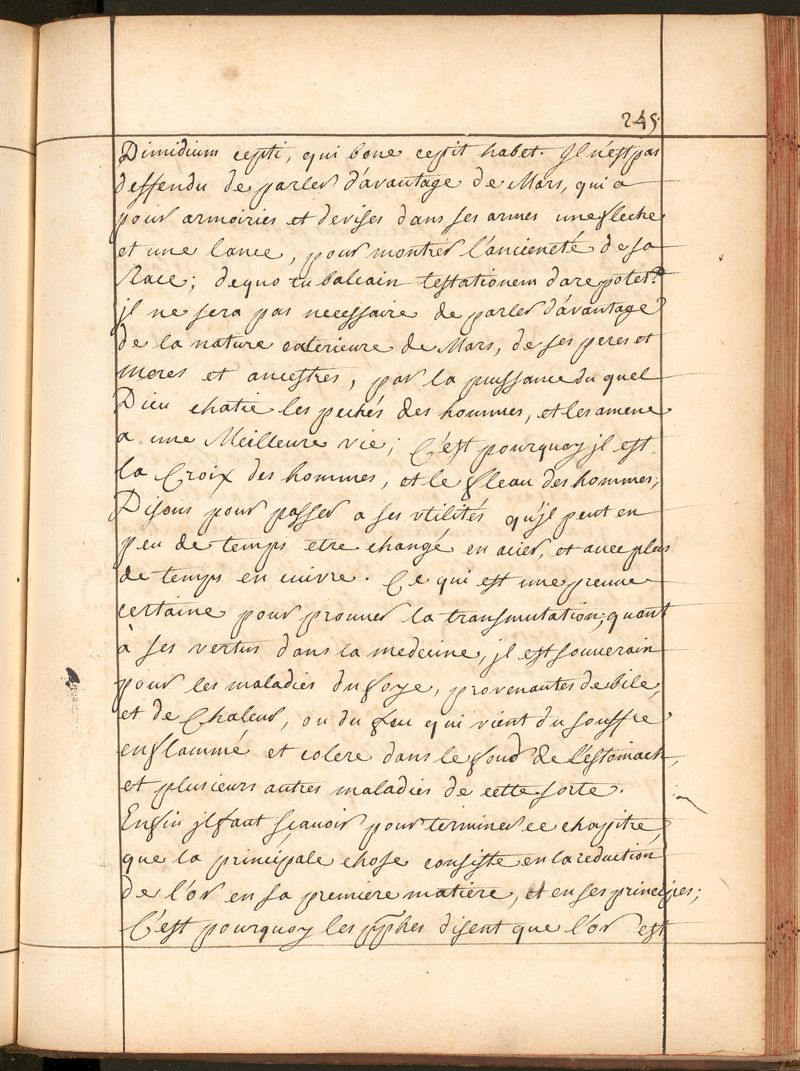 245.
Dimidium cepti, qui bone cepit habet. Il n'est pas
deffendu de parler d'avantage de Mars, qui a
pour armoiries et devises dans ses armes une fleche
et une lance, pour montrer l'ancieneté de sa
Race; de quo tu balcain testationem dare potes?
jl ne sera pas necessaire de parler d'avantage
de la nature exterieure de Mars, de ses peres et
meres et ancestres, par la puissance du quel
Dieu chatie les pechés des hommes, et les amene
a une Meilleure vie; C'est pourquoy jl est
la Croix des hommes, et le fleau des hommes;
Disons pour passer a ses vtilités qu'jl peut en
peu de temps etre changé en acier, et avec plus
de temps en cuivre. Ce qui est une preuue
certaine pour prouuer la transmutation; quant
à ses vertus dans la medecine, jl est souuerain
pour les maladies du foye, provenantes de bile,
et de Chaleur, ou du feu qui vient du souffre
enflammé et colere dans le fond de l'estomach,
et plusieurs autres maladies de cette sorte.
Enfin jl faut sçauoir pour terminer ce chapitre,
que la principale chose consiste en la reduction
de l'or en sa premiere matiere, et en ses principes;
C'est pourquoy les pphes disent que l'or est